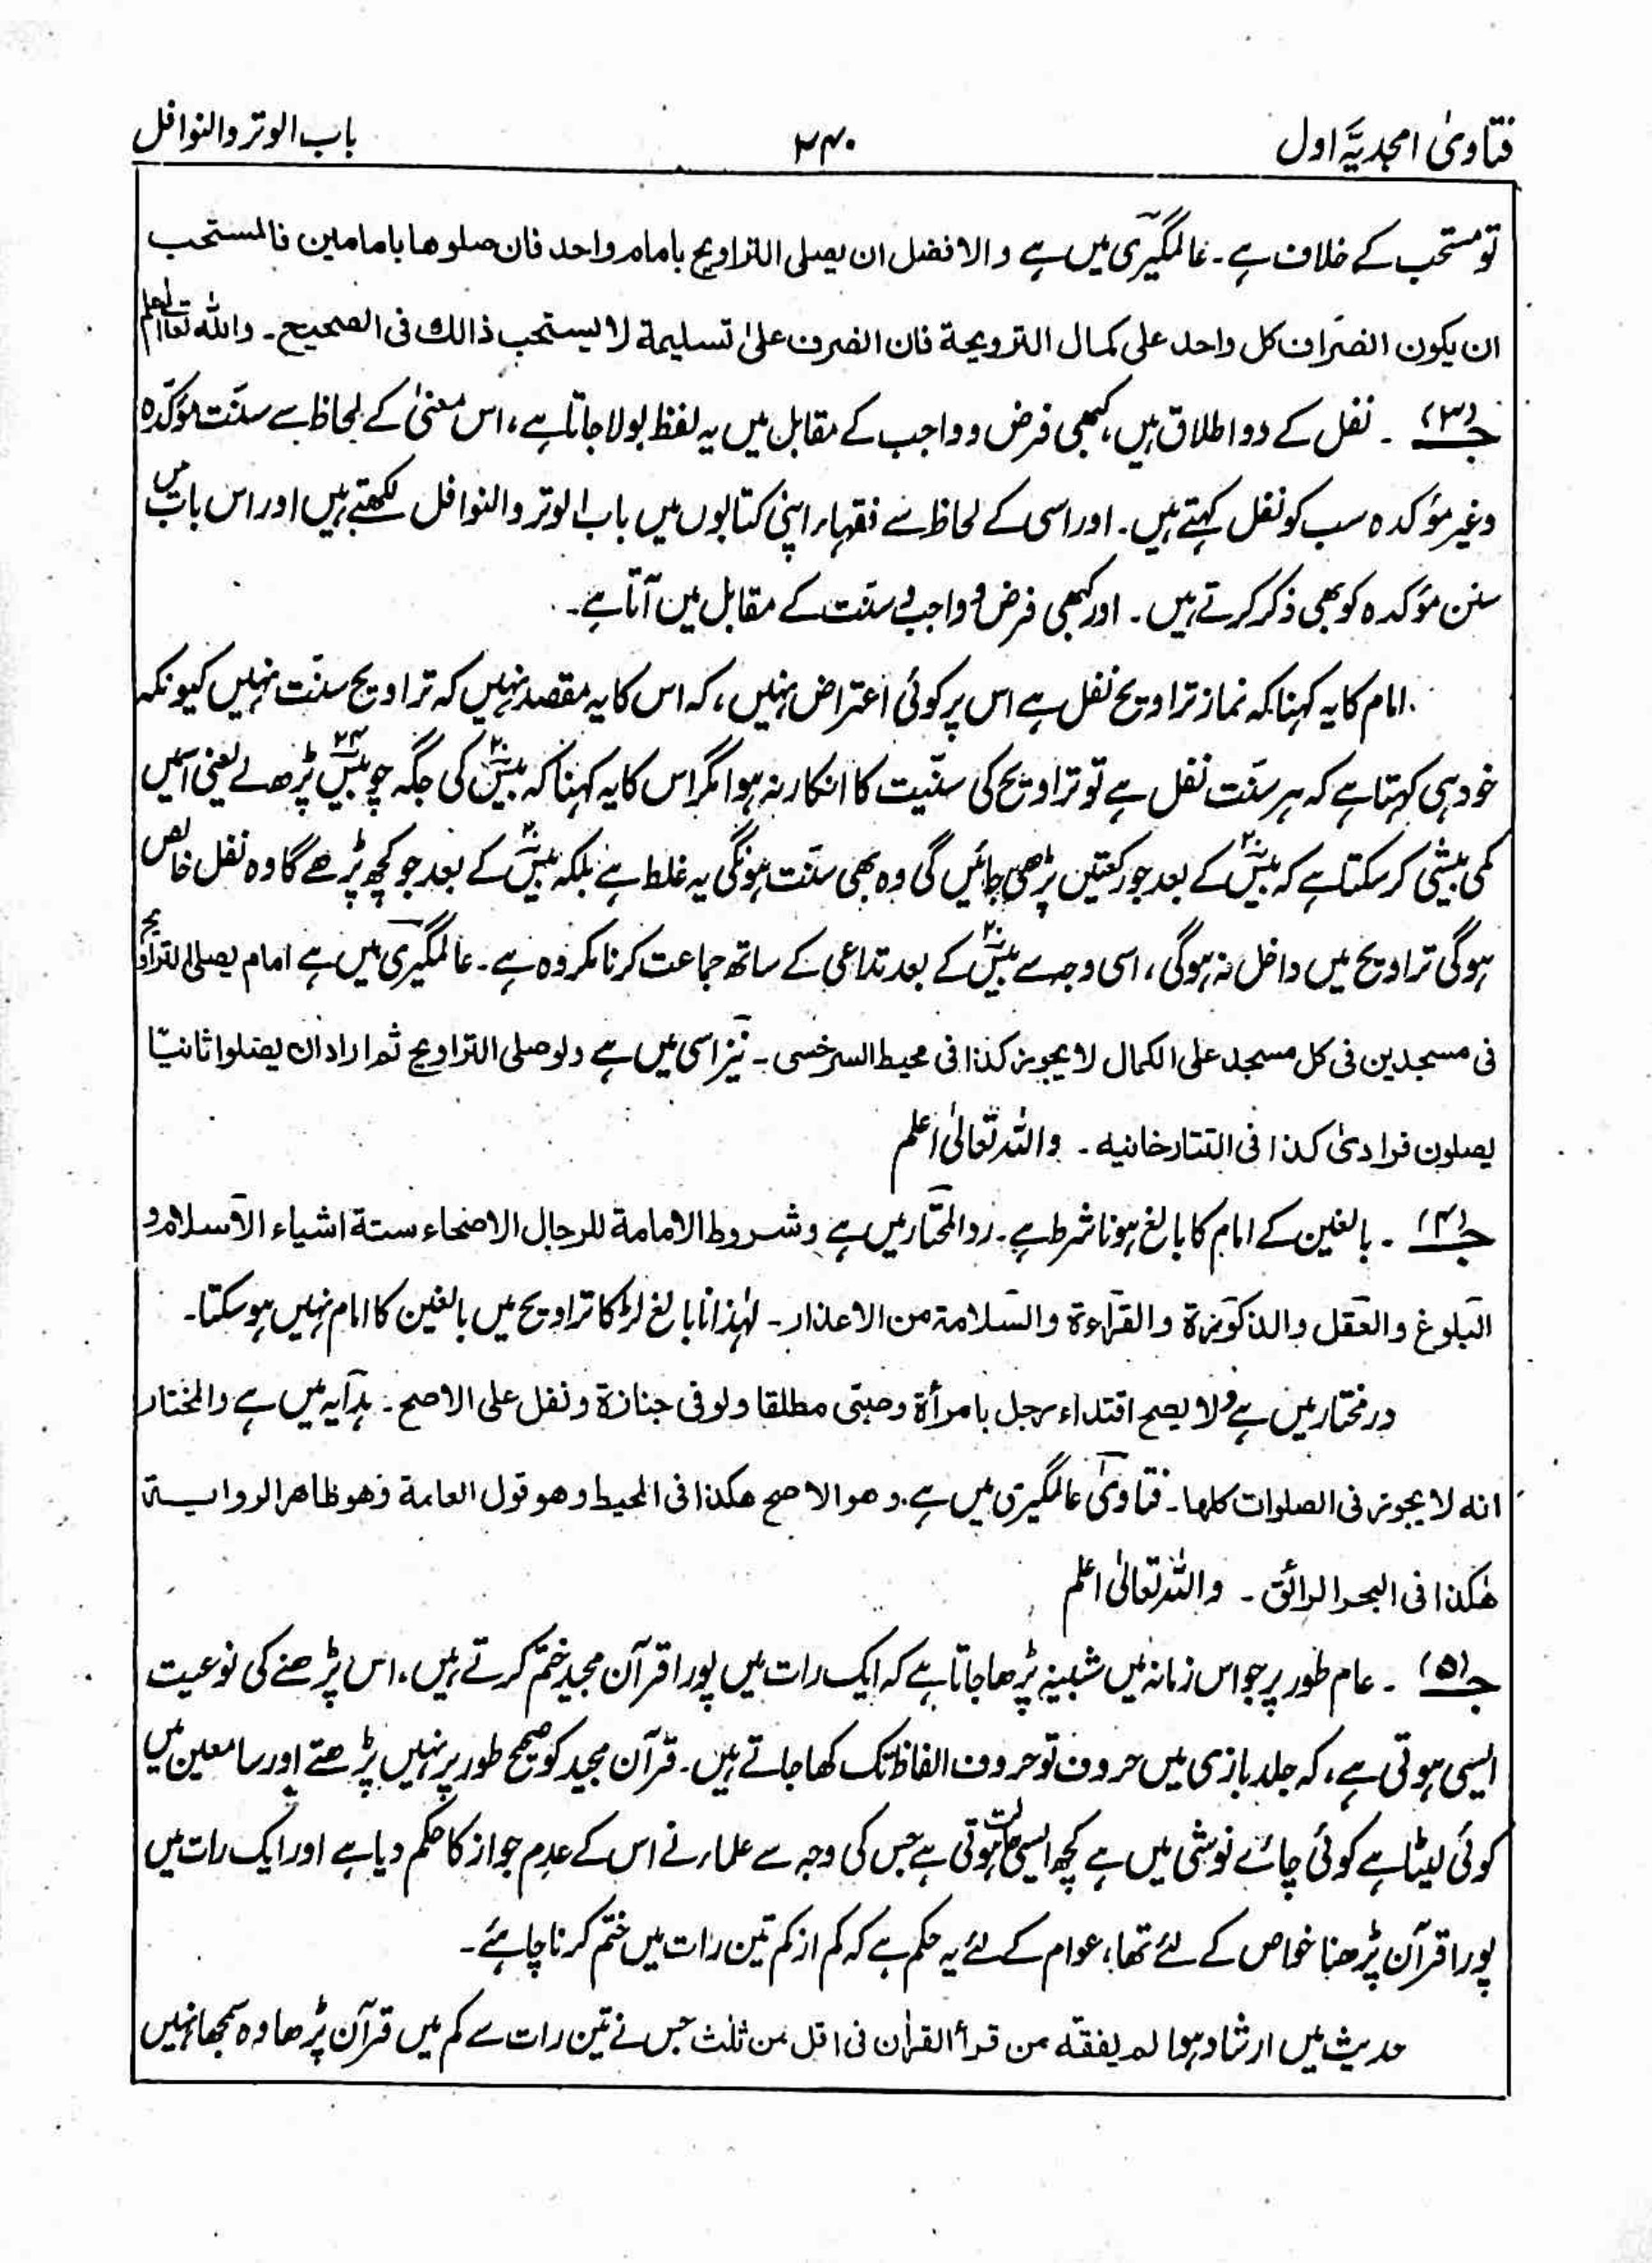 فتاویٰ امجدیہ اول ۲۴۰ باب الوتر والنوافل
تو مستحب کے خلاف ہے۔ عالمگیری میں ہے والافضل ان یصلی التراویح بامام واحد فان صلوھا بامامین فالمستحب
ان یکون انصراف کل واحد علی کمال الترویحة فان انصرف علیٰ تسلیمة لا یستحب ذالك فی الصحیح۔ واللہ تعالیٰ اعلم
ج (۳) ۔ نفل کے دو اطلاق ہیں، کبھی فرض و واجب کے مقابل میں یہ لفظ بولا جاتا ہے، اس معنیٰ کے لحاظ سے سنّت مؤکدہ
وغیر مؤکدہ سب کو نفل کہتے ہیں۔ اور اسی کے لحاظ سے فقہاء اپنی کتابوں میں باب الوتر والنوافل لکھتے ہیں اور اس باب میں
سنن مؤکدہ کو بھی ذکر کرتے ہیں۔ اور کبھی فرض و واجب و سنّت کے مقابل میں آتا ہے۔
امام کا یہ کہنا کہ نماز تراویح نفل ہے اس پر کوئی اعتراض نہیں، کہ اس کا یہ مقصد نہیں کہ تراویح سنّت نہیں کیونکہ
خود ہی کہتا ہے کہ ہر سنّت نفل ہے تو تراویح کی سنّیت کا انکار نہ ہوا مگر اس کا یہ کہنا کہ بیس۲۰ کی جگہ چوبیس۲۴ پڑھے یعنی اسمیں
کمی بیشی کر سکتا ہے کہ بیس۲۰ کے بعد جو رکعتیں پڑھی جائیں گی وہ بھی سنّت ہونگی یہ غلط ہے بلکہ بیس۲۰ کے بعد جو کچھ پڑھے گا وہ نفل خالص
ہوگی تراویح میں داخل نہ ہوگی، اسی وجہ سے بیس۲۰ کے بعد تداعی کے ساتھ جماعت کرنا مکروہ ہے۔ عالمگیری میں ہے امام یصلی التراویح
فی مسجدین فی کل مسجد علی الکمال لا یجوز کذا فی محیط السرخسی۔ نیز اسی میں ہے ولو صلی التراویح ثم اراد ان یصلوا ثانیًا
یصلون فرادیٰ کذا فی التتارخانیه۔ واللہ تعالیٰ اعلم
ج (۴) ۔ بالغین کے امام کا بالغ ہونا شرط ہے۔ ردالمحتار میں ہے وشروط الامامة للرجال الاصحاء ستة اشیاء الاسلام و
البلوغ والعقل والذکورة والقراءة والسلامة من الاعذار۔ لہٰذا نابالغ لڑکا تراویح میں بالغین کا امام نہیں ہو سکتا۔
در مختار میں ہے ولا یصح اقتداء رجل بامرأة وصبی مطلقا ولو فی جنازة ونفل علی الاصح۔ ہدایہ میں ہے والمختار
انه لا یجوز فی الصلوات کلھا۔ فتاویٰ عالمگیری میں ہے وھو الاصح ھکذا فی المحیط وھو قول العامة وھو ظاھر الروایة
ھٰکذا فی البحر الرائق۔ واللہ تعالیٰ اعلم
ج (۵) ۔ عام طور پر جو اس زمانہ میں شبینہ پڑھا جاتا ہے کہ ایک رات میں پورا قرآن مجید ختم کرتے ہیں، اس پڑھنے کی نوعیت
ایسی ہوتی ہے، کہ جلد بازی میں حروف تو حروف الفاظ تک کھا جاتے ہیں۔ قرآن مجید کو صحیح طور پر نہیں پڑھتے اور سامعین میں
کوئی لیٹا ہے کوئی چائے نوشی میں ہے کچھ ایسی ہوتی ہے جس کی وجہ سے علماء نے اس کے عدم جواز کا حکم دیا ہے اور ایک رات میں
پورا قرآن پڑھنا خواص کے لئے تھا، عوام کے لئے یہ حکم ہے کہ کم از کم تین رات میں ختم کرنا چاہئے۔
حدیث میں ارشاد ہوا لم یفقه من قرأ القراٰن فی اقل من ثلث جس نے تین رات سے کم میں قرآن پڑھا وہ سمجھا نہیں